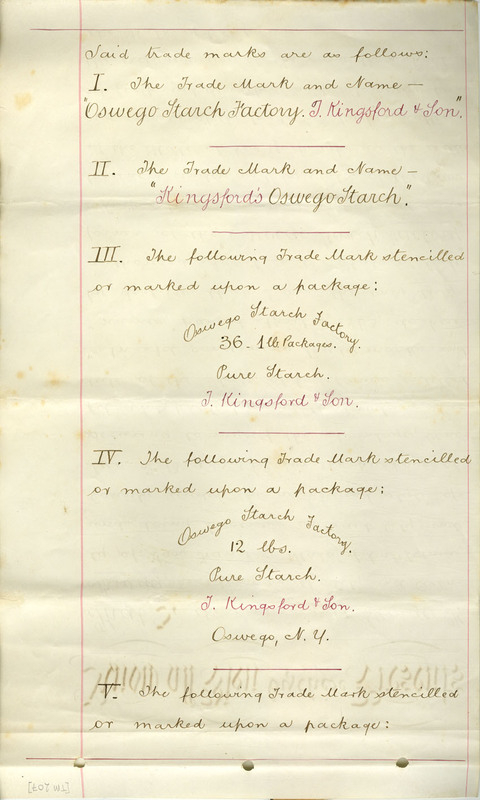 Said trade marks are as follows:
I. The Trade Mark and Name —
"Oswego Starch Factory. T. Kingsford & Son".
II. The Trade Mark and Name —
"Kingsford's Oswego Starch".
III. The following Trade Mark stencilled
or marked upon a package:
Oswego Starch Factory.
36 - 1 lb Packages.
Pure Starch.
T. Kingsford & Son.
IV. The following Trade Mark stencilled
or marked upon a package:
Oswego Starch Factory.
12 lbs.
Pure Starch.
T. Kingsford & Son.
Oswego, N. Y.
V. The following Trade Mark stencilled
or marked upon a package:
[TM 207]